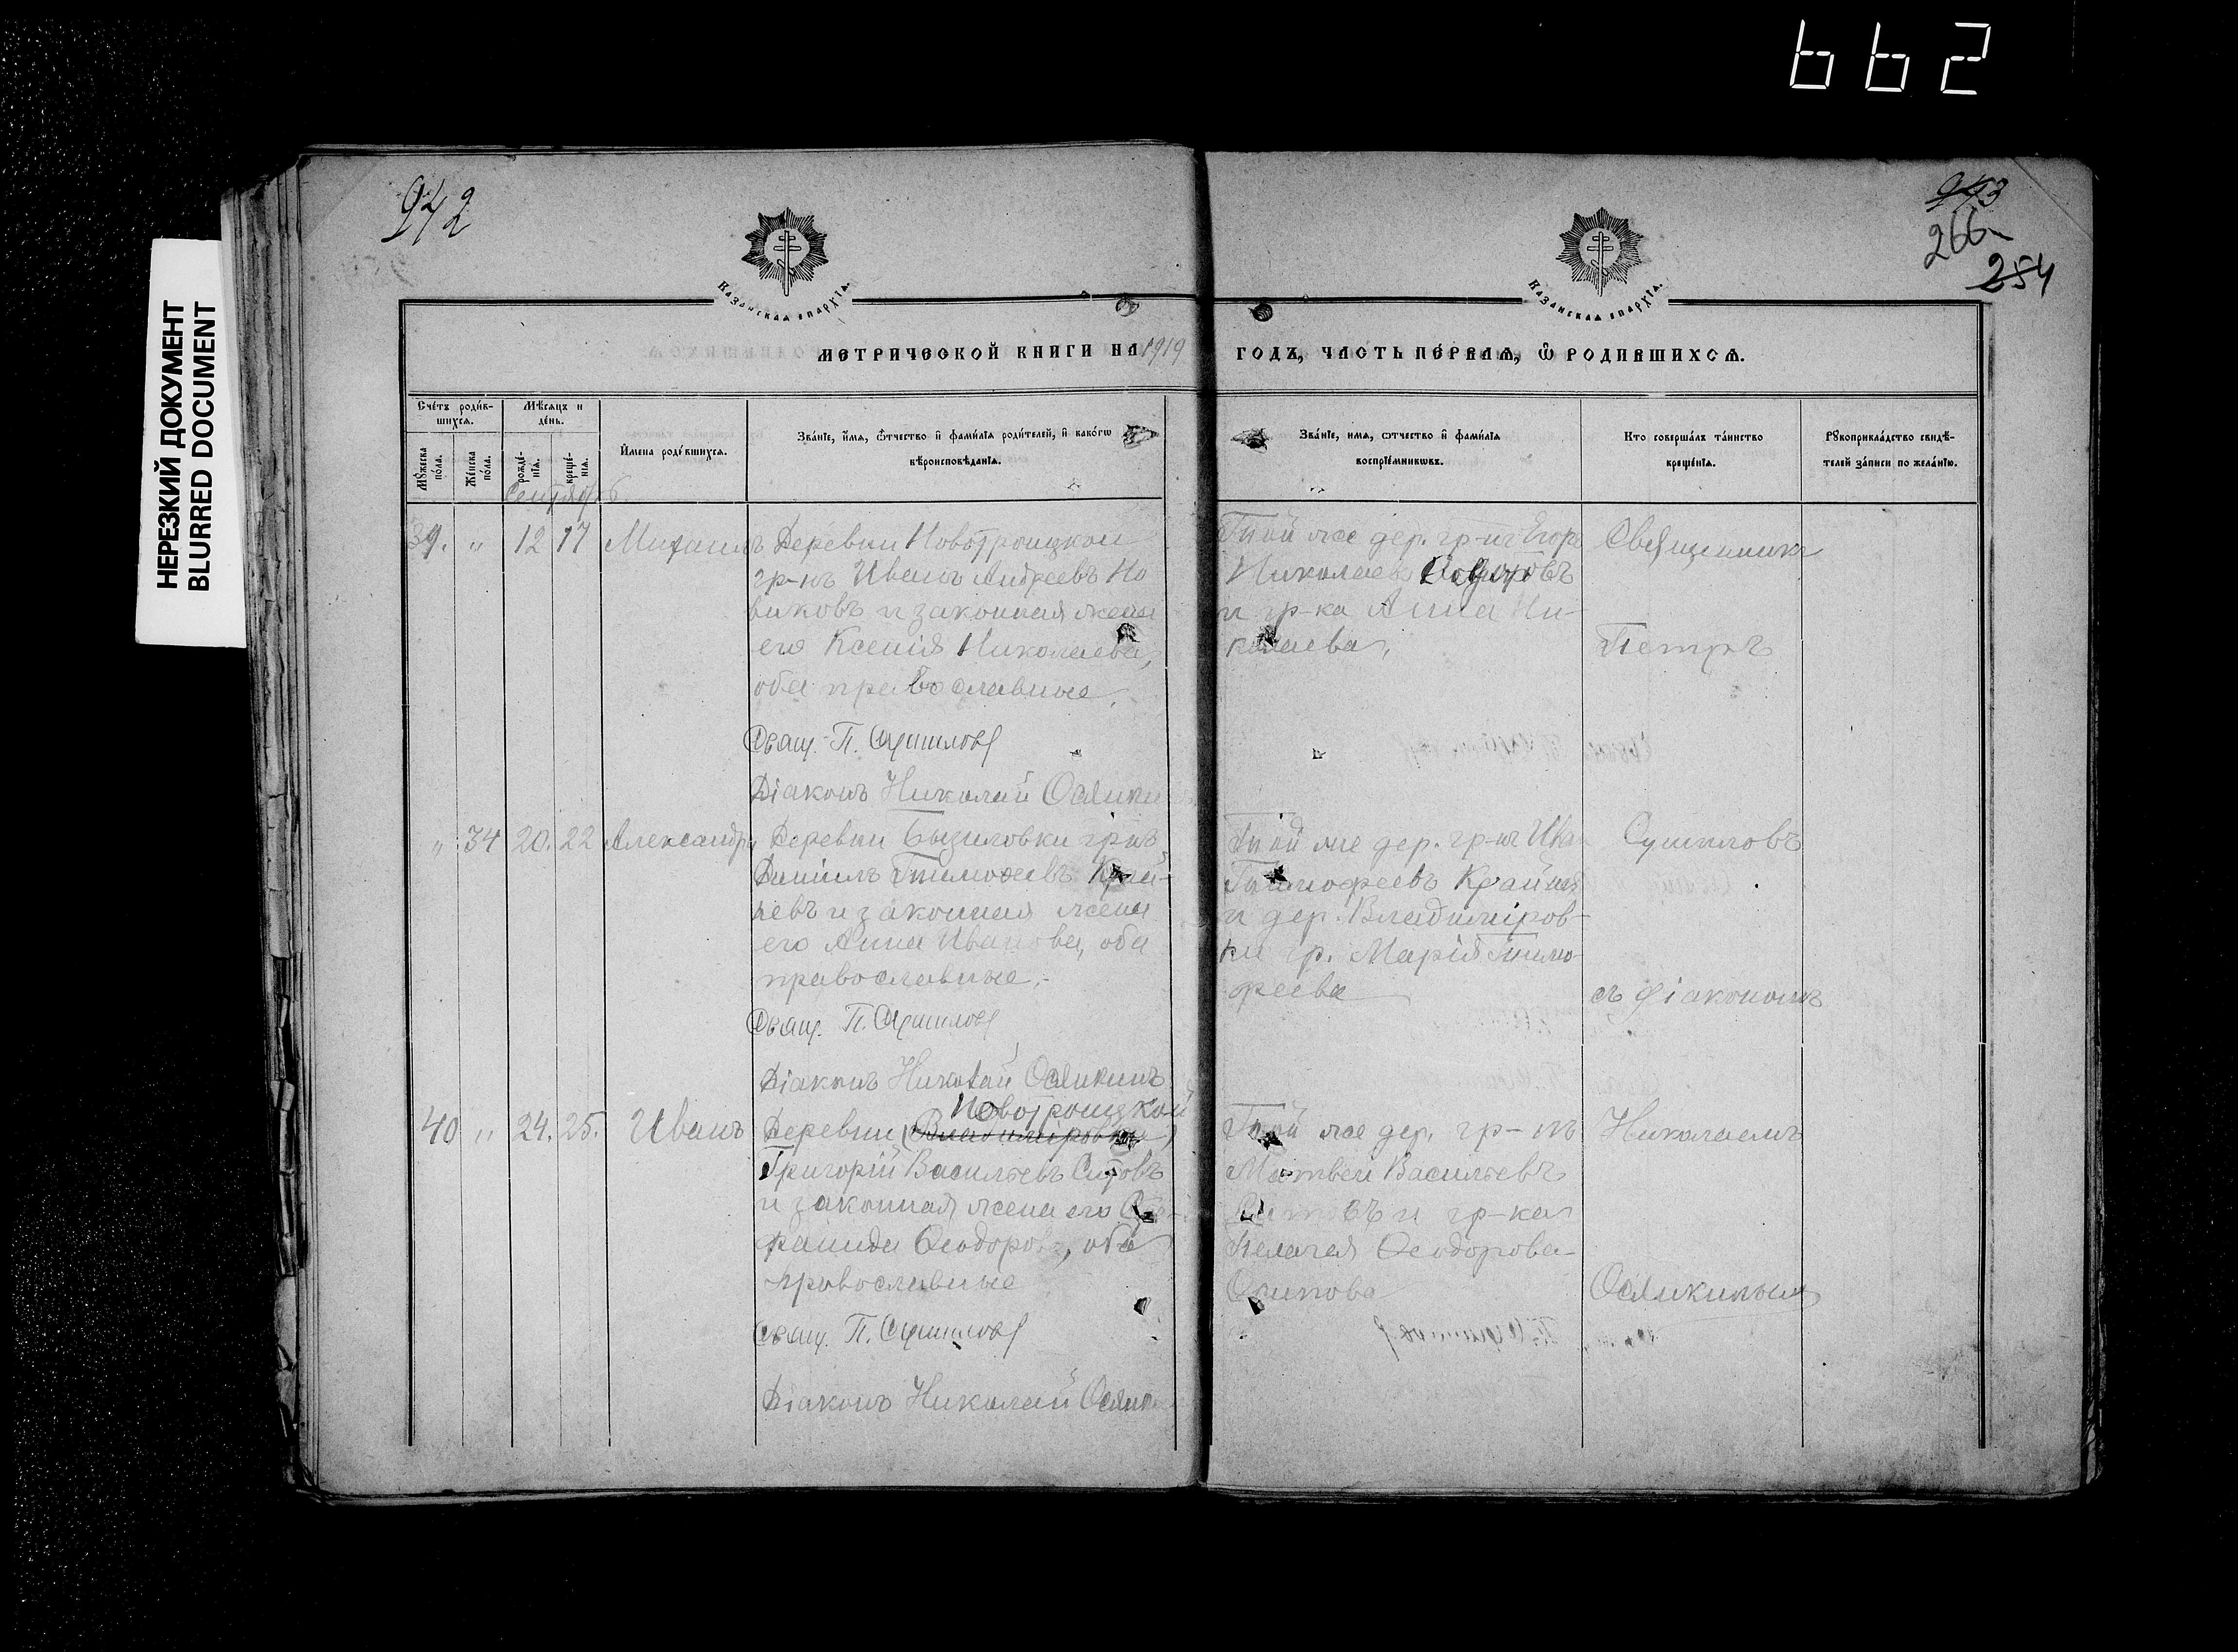 662
НЕРЕЗКИЙ ДОКУМЕНТ
BLURRED DOCUMENT
942
943
266
254
Казанская епархія.
Казанская епархія.
МЕТРИЧЕСКОЙ КНИГИ НА 1919
ГОДЪ, ЧАСТЬ ПЕРВАЯ, Ѡ РОДИВШИХСЯ.
Счётъ роди́в-
шихся.
Мѣсяцъ и
де́нь.
Мꙋжеска по́ла.
Же́нска по́ла.
рожде́-нія.
креще́-нія.
И҆мена роди́вшихся.
Зва́ніе, и҆мя, ѻтчество и҆ фами́лія роди́телей, и҆ како́гѡ
вѣроисповѣ́данія.
Зва́ніе, имя, ѻтчество и҆ фамилія
воспріе́мникѡвъ.
Кто соверша́лъ та́инство
креще́нія.
Рꙋкоприкла́дство свидѣ́-
телей за́писи по жела́нію.
Сентябрь
39. " 12 17 Михаилъ
Деревни Новотроицкой
гр-нъ Иванъ Андреевъ Но
виковъ и законная жена
его Ксенія Николаева,
оба православные.
Свящ. П. Сушиловъ
Діаконъ Николай
Той же дер. гр-нъ Егоръ
Николаевъ
и гр-ка Анна Ни-
колаева,
Священникъ
Петръ
" 34 20. 22 Александра
Деревни гр-нъ
Даніилъ Тимофеевъ Край-
невъ и законная жена
его Анна Иванова, оба
православные.
Свящ. П. Сушиловъ
Діаконъ Николай
Той же дер. гр-нъ
Тимофеевъ
и дер. Владиміров-
ки гр. Марія Тимо-
феева
Сушиловъ
съ діакономъ
40 " 24. 25. Иванъ
Новотроицкой
Деревни (Владиміровки)
Григорій Васильевъ Ситовъ
и законная жена его
Ѳеодорова, оба
православные
Свящ. П. Сушиловъ
Діаконъ Николай
Той же дер. гр-нъ
Матвей Васильевъ
и гр-ка
Пелагея Ѳеодорова
Николаемъ